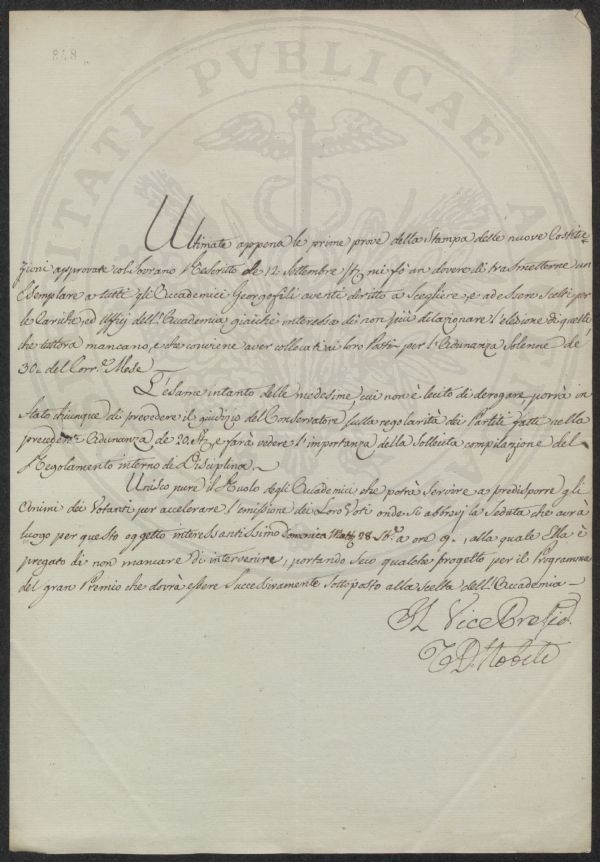 848
PROSPERITATI PVBLICAE AVGENDAE
Ultimate appena le prime prove della Stampa delle nuove Costitu-
zioni approvate col Sovrano Rescritto de 12 Settembre mi fò un dovere di trasmetterne un
Esemplare a tutti gli Accademici Georgofili aventi diritto a Scegliere, e ad essere scelti per
le Cariche, ed Uffizj dell'Accademia, giacchè interessa di non più dilazionare l'elezione di quelli,
che tuttora mancano, e che conviene aver collocati ai loro Posti per l'Adunanza Solenne de
30. del Corr.e Mese
L'esame intanto delle medesime, cui non è lecito di derogare, porrà in
stato chiunque di prevedere il giudizio del Conservatore sulla regolarità dei Partiti fatti nella
preceden.e Adunanza de 20. e farà vedere l'importanza della Sollecita compilazione del
Regolamento interno di Disciplina.
Unisco pure il Ruolo degli Accademici che potrà servire a predisporre gli
animi dei Votanti per accelerare l'emissione dei Loro Voti onde si abbrevj la Seduta che avrà
luogo per questo oggetto interessantissimo Domenica Matt.a 28. a ore 9., alla quale Ella è
pregato di non mancare di intervenire, portando Seco qualche progetto per il Programma
del gran Premio che dovrà essere Successivamente Sottoposto alla Scelta dell'Accademia
Il Vice Presid.
Nobili